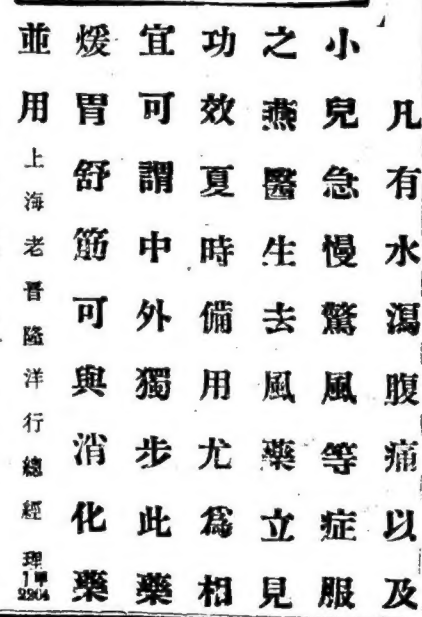 凡有水瀉腹痛以及
小兒急慢驚風等症服
之燕醫生去風藥立見
功效夏時備用尤爲相
宜可謂中外獨步此藥
煖胃舒筋可與消化藥
並用上海老晋隆洋行總經理